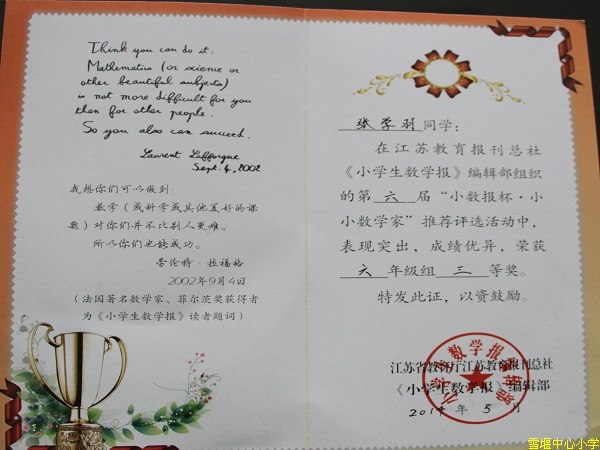 Think you can do it:
Mathematics (or science or
other beautiful subjects)
is not more difficult for you
than for other people.
So you also can succeed.
Laurent Lafforgue
Sept. 4, 2002
我想你们可以做到:
数学(或科学或其他美好的课
题)对你们并不比别人更难。
所以你们也能成功。
劳伦特·拉福格
2002年9月4日
(法国著名数学家、菲尔茨奖获得者
为《小学生数学报》读者题词)
张学羽同学:
在江苏教育报刊总社
《小学生数学报》编辑部组织
的第六届“小数报杯·小
小数学家”推荐评选活动中,
表现突出,成绩优异,荣获
六年级组三等奖。
特发此证,以资鼓励。
江苏省教育厅江苏教育报刊总社
《小学生数学报》编辑部
2014年5月
小学生数学报编辑部
雪堰中心小学